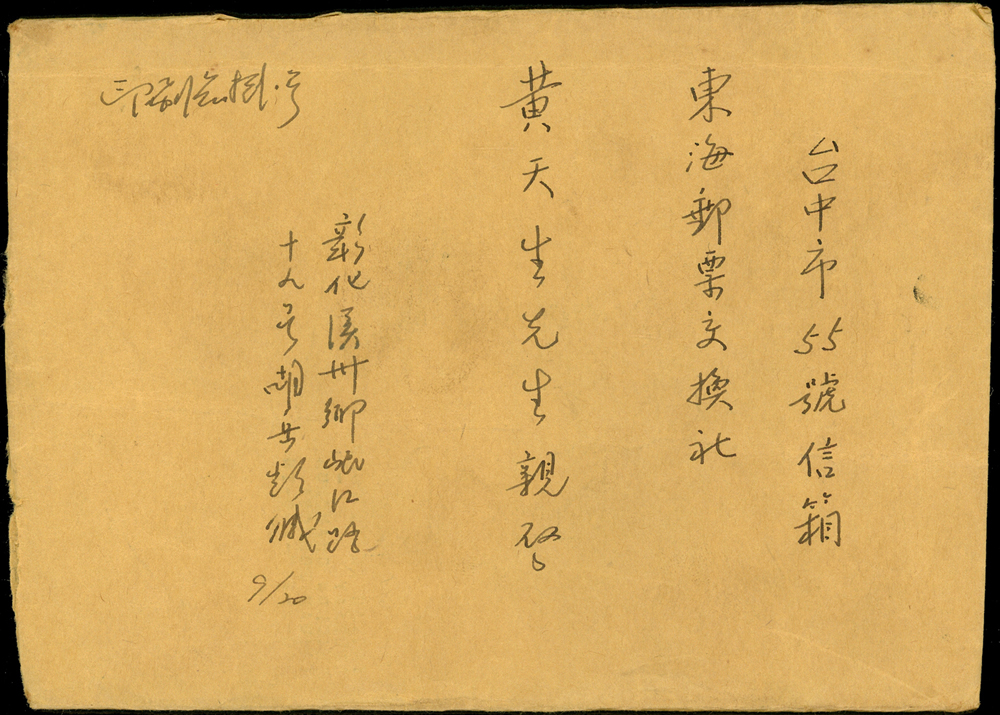 台中市55號信箱
東海郵票交換社
黃天生先生親啓
彰化溪州鄉路
十九号緘
9/20
印刷掛号